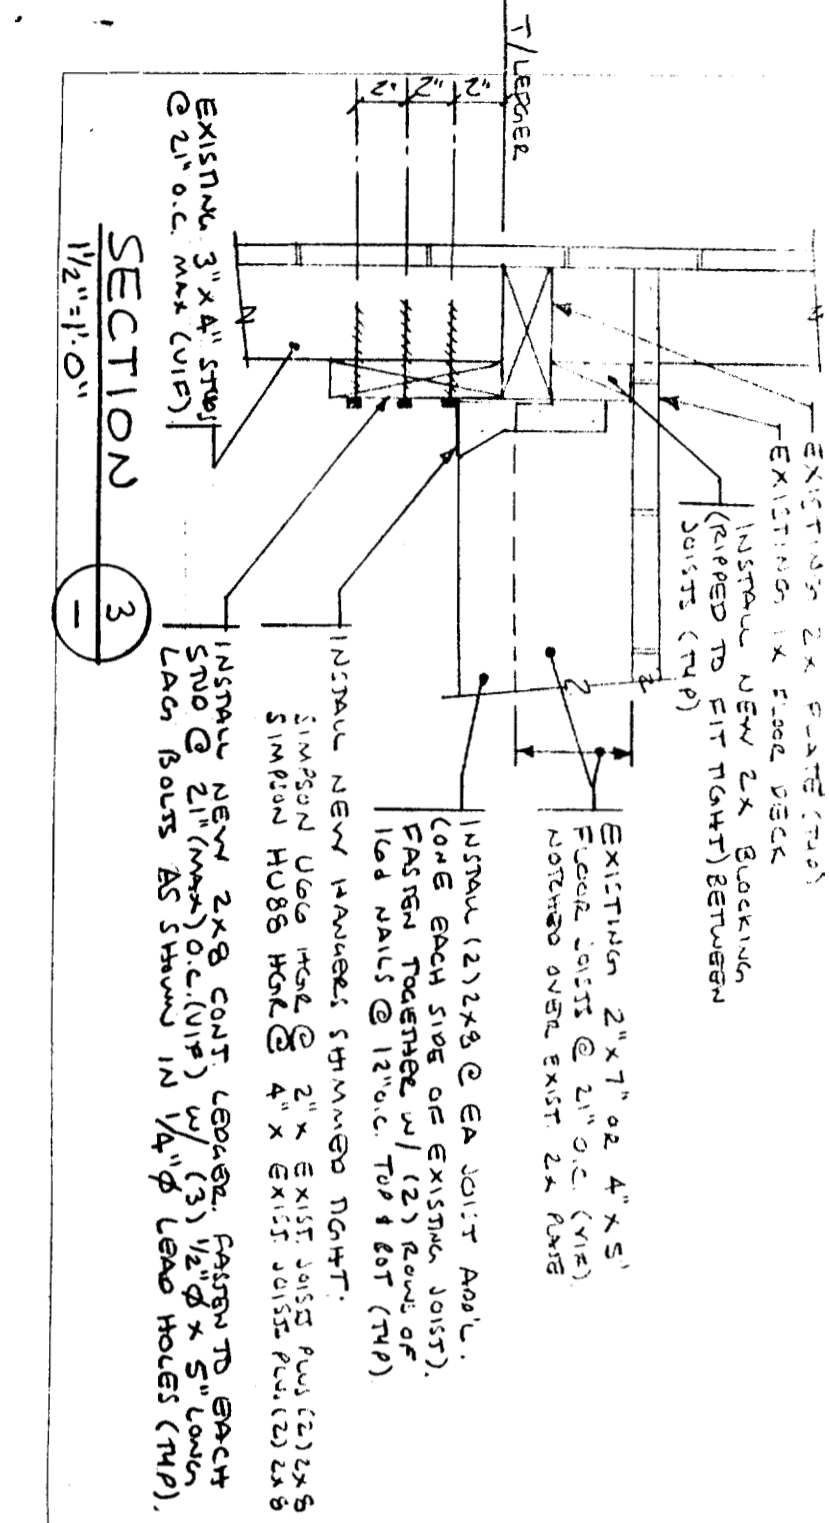 T/LEDGER
2" 2" 2"
EXISTING 2X PLATE (TYP)
EXISTING 1X FLOOR DECK
INSTALL NEW 2X BLOCKING
(RIPPED TO FIT TIGHT) BETWEEN
JOISTS (TYP)
EXISTING 2" X 7" OR 4" X 5"
FLOOR JOISTS @ 21" O.C. (VIF)
NOTCHED OVER EXIST. 2X PLATE
INSTALL (2) 2X8 @ EA JOIST ADD'L.
(ONE EACH SIDE OF EXISTING JOIST).
FASTEN TOGETHER W/ (2) ROWS OF
16d NAILS @ 12" O.C. TOP & BOT (TYP)
INSTALL NEW HANGERS SHIMMED TIGHT:
SIMPSON U66 HGR @ 2" X EXIST. JOIST PLUS (2) 2X8
SIMPSON HU88 HGR @ 4" X EXIST. JOIST PLUS (2) 2X8
INSTALL NEW 2X8 CONT. LEDGER. FASTEN TO EACH
STUD @ 21" (MAX) O.C. (VIF) W/ (3) 1/2"Ø X 5" LONG
LAG BOLTS AS SHOWN IN 1/4"Ø LEAD HOLES (TYP).
EXISTING 3" X 4" STUDS
@ 21" O.C. MAX (VIF)
SECTION 3
1 1/2" = 1'-0" –